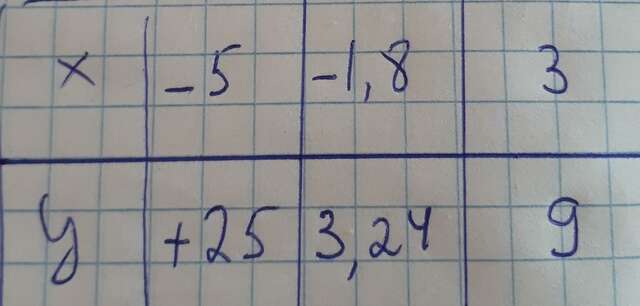 x -5 -1,8 3
y +25 3,24 9